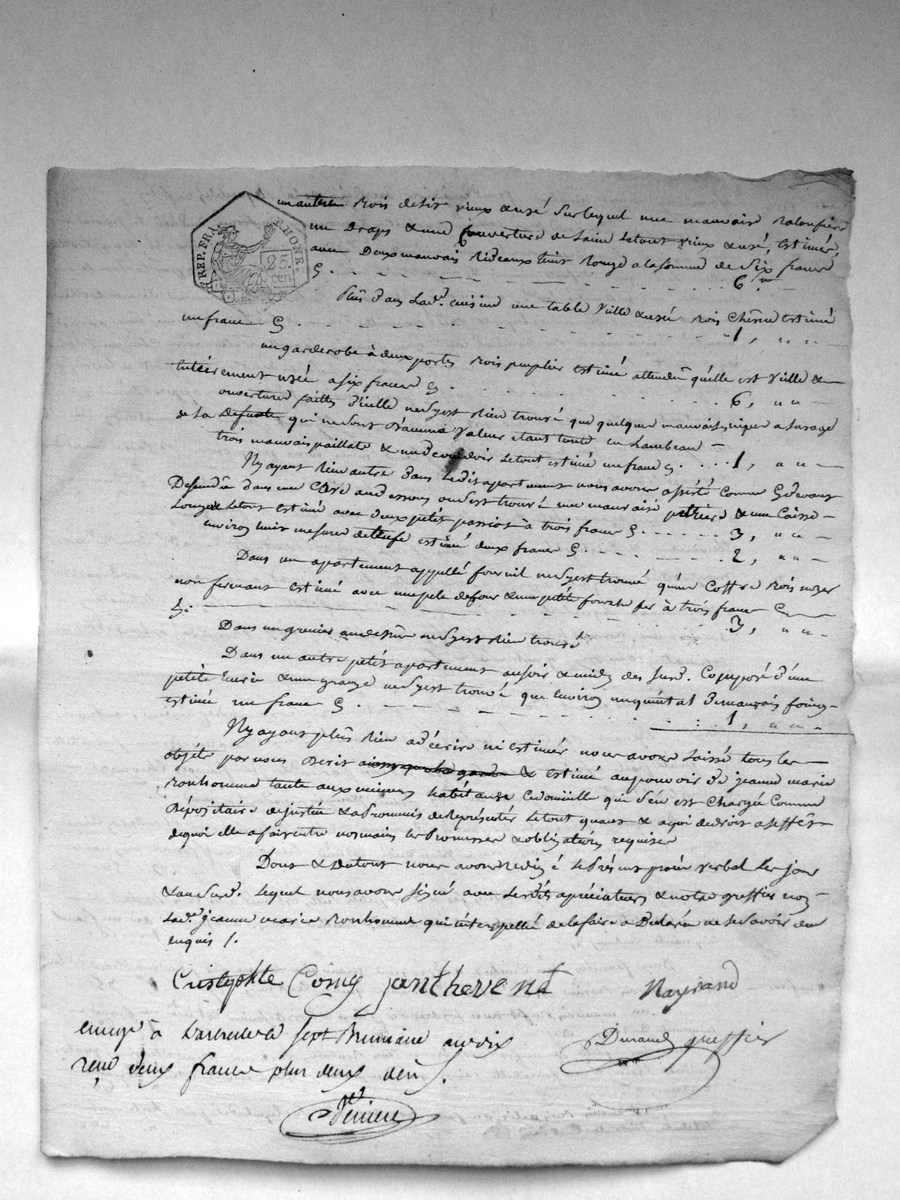 REP. FRA. RHONE.
25 cen
un autre bois de lit vieux & usé sur lequel une mauvaise
un draps & une Couverture de laine le tout vieux & usé, estimés,
avec deux mauvais rideaux rouge a la somme de six francs
6
Plus dans lad.e cuisine une table vielle & usé bois chêne estimé
un franc 1, " " –
un garderobe à deux portes bois puplier estimé attendu quélle est vielle &
entièrement usée a six francs 6, " " –
ouverture faitte d'icelle ne s'y est rien trouvé que quelque mauvais a lusage
de la defunte qui ne sont d'aucune valeur etant tout en lambeau –
trois mauvais paillate & un le tout estimé un franc 1, " " –
N'y ayant rien autre dans le dit apartement nous avons comme
Descendu dans une Cave au dessous ou s'est trouvé une mauvaise & une Caisse
le tout estimé avec deux petit à trois francs 3, " " –
environ huit mesure estimé deux francs 2, " " –
Dans un apartement appellé fournil ne s'y est trouvé qu'un Coffre bois noyer
non fermant estimé avec une pele de four & une petite fourche fer à trois francs
3, " " –
Dans un grenier au dessus ne s'y est rien trouvé
Dans un autre petit apartement au soir & midy des susd. Composé d'une
petite Ecurie & une grange ne s'y est trouvé que environ un quintal de mauvais foin
estimé un franc 1, " " –
N'y ayant plus rien a décrire ni estimer nous avons laissé tous les
objets par nous decrit & estimé au pouvoir de jeanne marie
Bonhomme tante aux mineurs habitante qui s'en est chargée comme
Dépositaire de justice & a promis de Représenter le tout quant & a qui de droit a l'effet
de quoi elle a fait entre nos mains les promesses & obligations requise
Dont & du tout nous avons redigé le présent procès verbal les jour
& an susd. lequel nous avons signé avec les dits apréciateurs & notre greffier non
lad.e jeanne marie Bonhomme qui interpellée de le faire a Déclaré ne le savoir de
enquis /.
Cristophle Comy janthevent Naÿrand
Durand greffier
enregé à Larbresle le sept Brumaire an dix
reçu deux francs plus deux